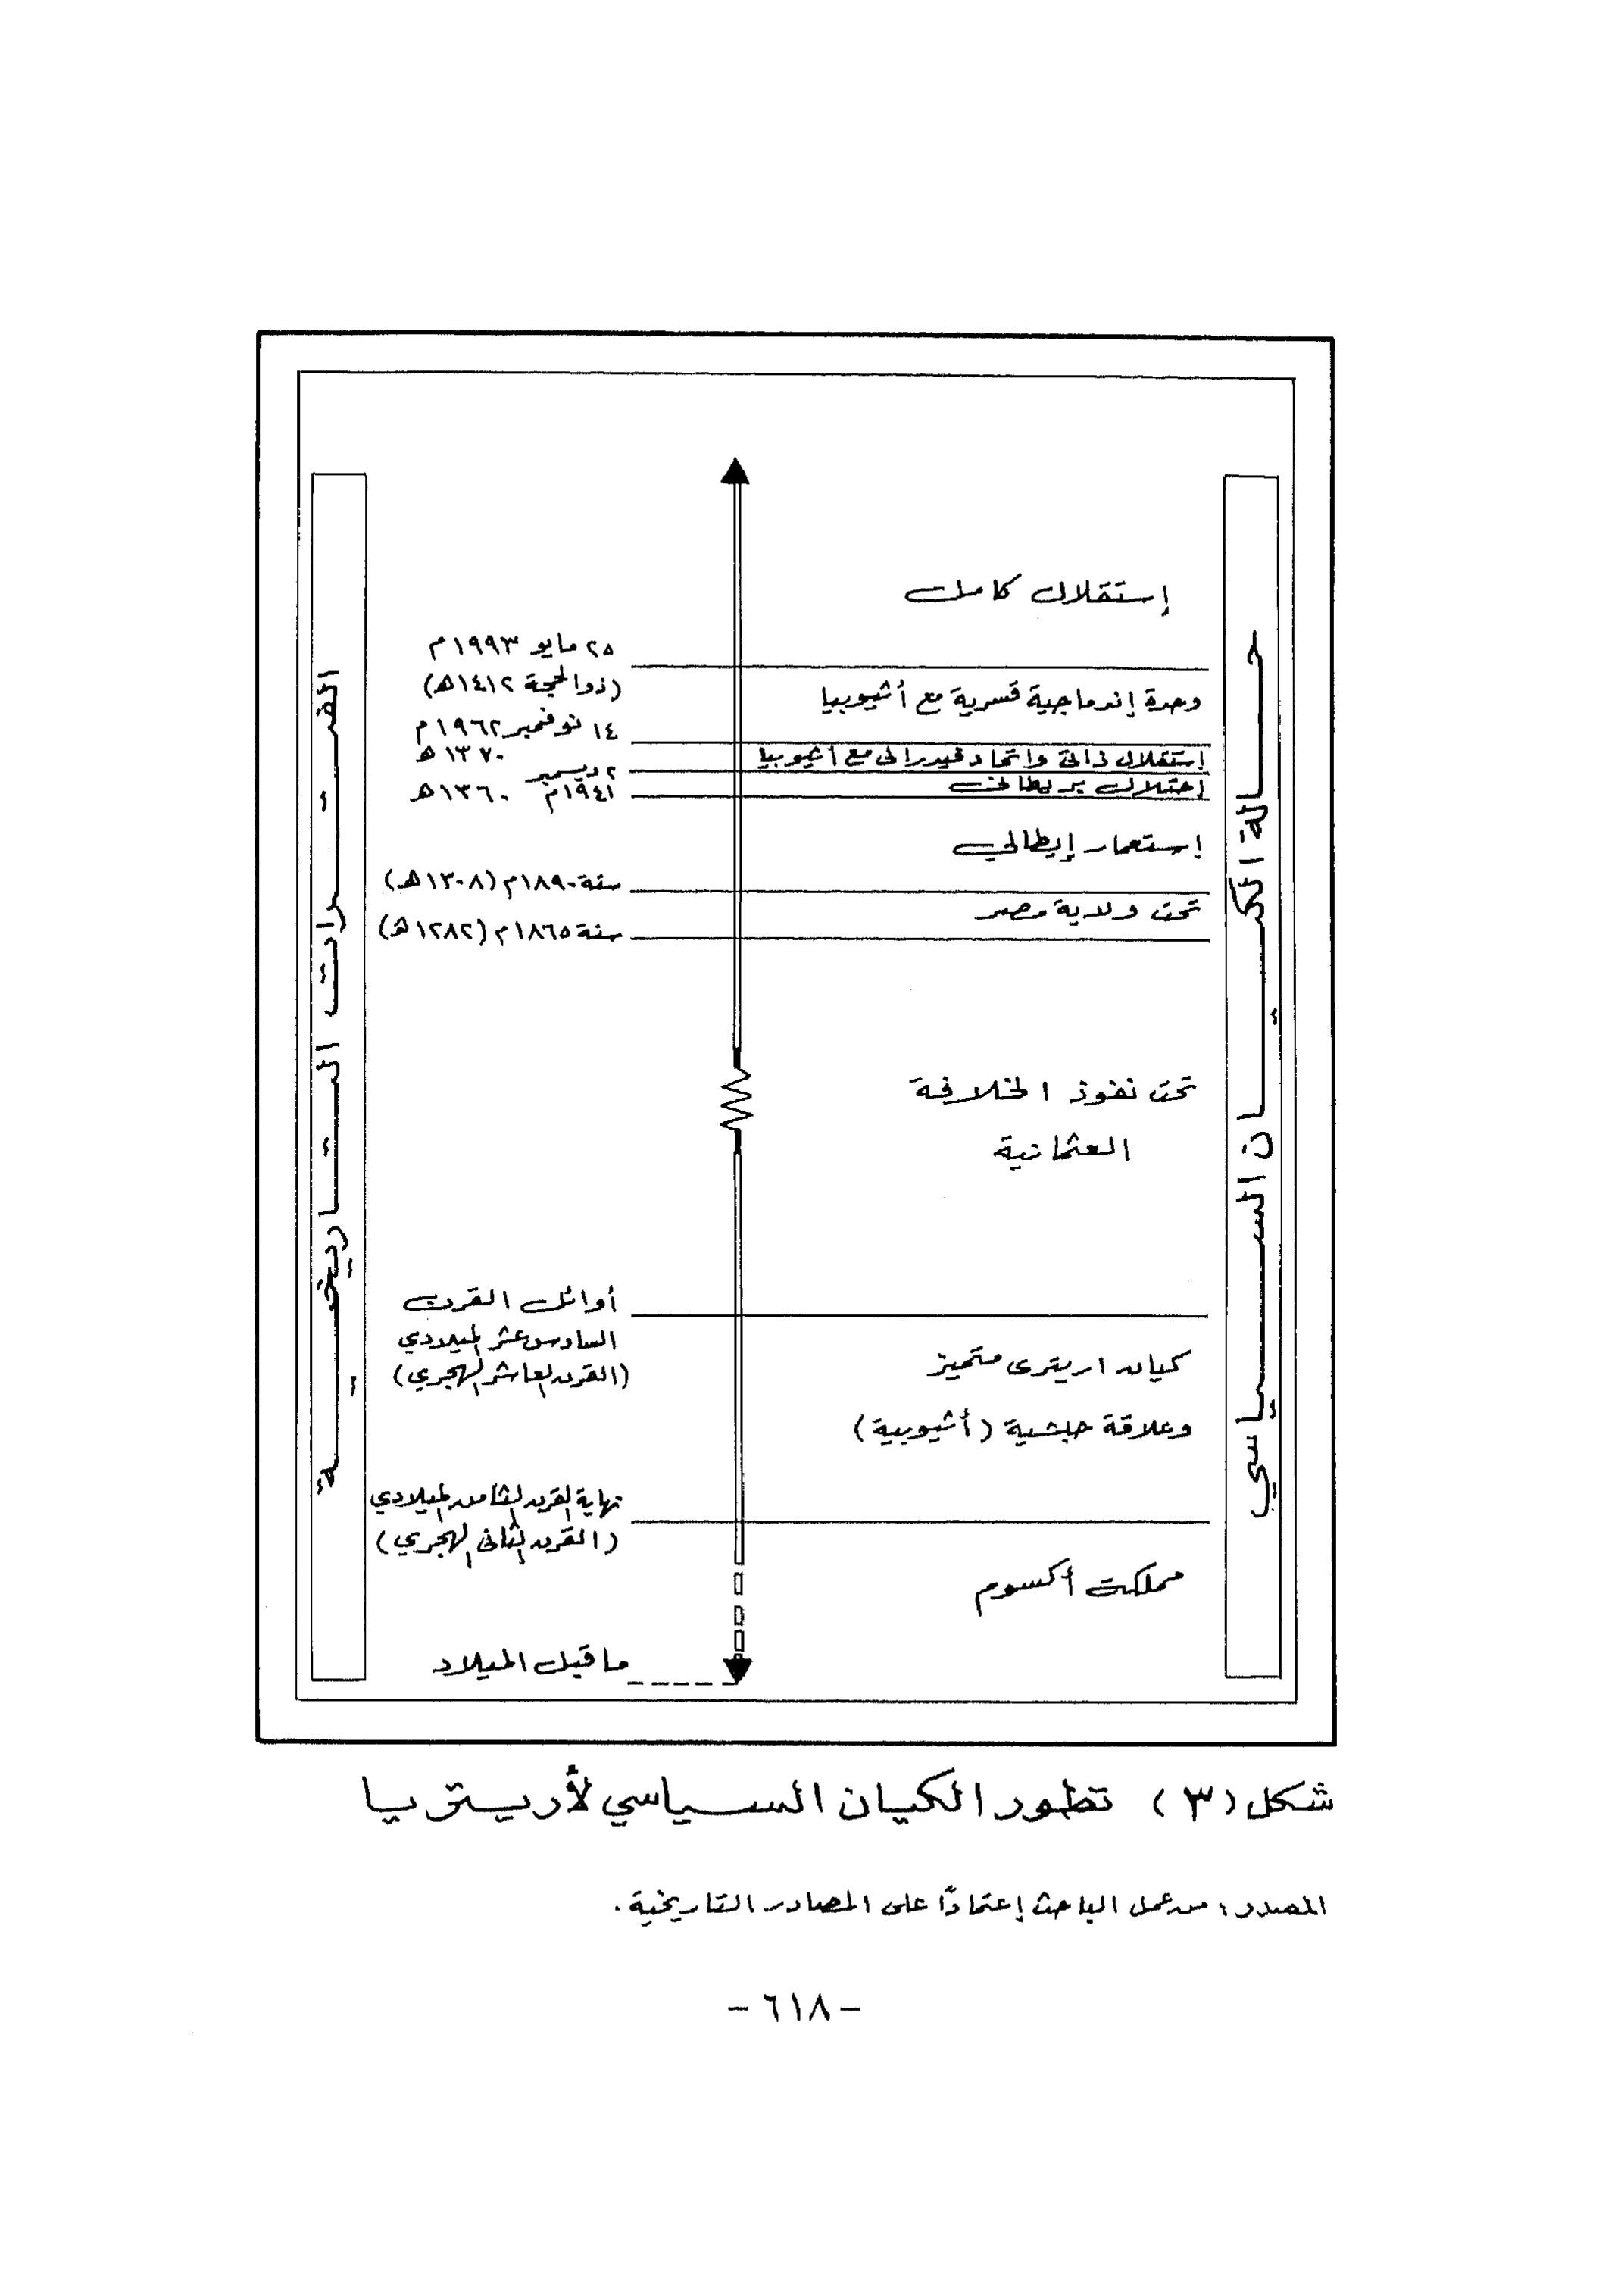 حالة الكيان السياسي
الفترات التاريخية
إستقلال كامل
٢٥ مايو ١٩٩٣م
(ذو الحجة ١٤١٢هـ)
وحدة إندماجية قسرية مع أثيوبيا
١٤ نوفمبر ١٩٦٢م
إستقلال ذاتي واتحاد فيدرالى مع أثيوبيا
١٣٧٠هـ
٢ ديسمبر
إحتلال بريطاني
١٩٤١م ١٣٦٠هـ
إستعمار إيطالي
سنة ١٨٩٠م (١٣٠٨هـ)
تحت ولاية مصر
سنة ١٨٦٥م (١٢٨٢هـ)
تحت نفوذ الخلافة
العثمانية
أوائل القرن
السادس عشر الميلادي
(القرن العاشر الهجري)
كيان اريترى متميز
وعلاقة حبشية (أثيوبية)
نهاية القرن الثامن الميلادي
(القرن الثانى الهجري)
مملكت أكسوم
ما قبل الميلاد
شكل (٣) تطور الكيان السياسي لأريتريا
المصدر : من عمل الباحث إعتمادًا على المصادر التاريخية .
- ٦١٨ -